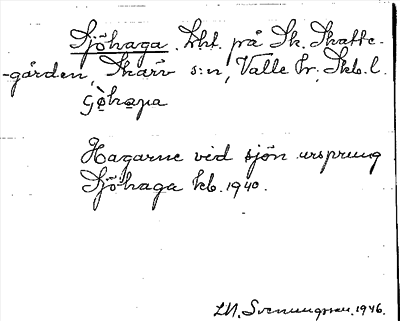 Sjöhaga. Lht. på Sk. Skatte-
-gården, Skärv s:n, Valle hr. Skb.l.
Hagarne vid sjön ursprung.
Sjöhaga kb. 1940.
LM. Svenungsson. 1946.